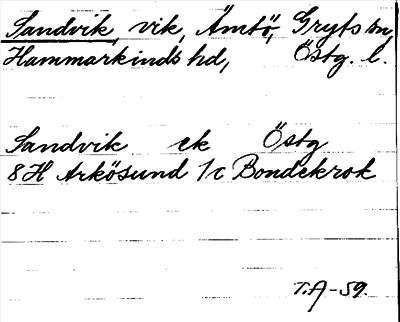 Sandvik, vik, Ämtö, Gryts sn,
Hammarkinds hd, Östg. l.
Sandvik ek Östg
8H Arkösund 1c Bondekrok
T.A-59.